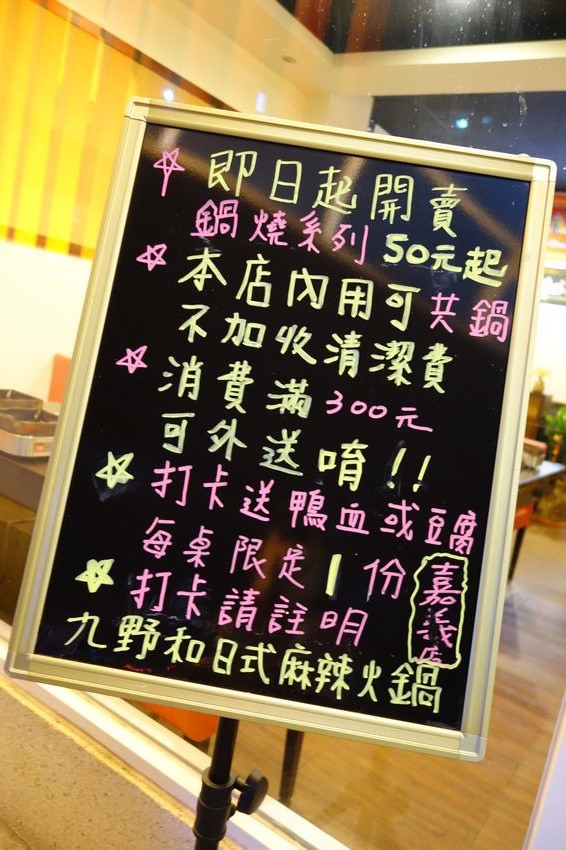 ☆即日起開賣
鍋燒系列 50元起
☆本店內用可共鍋
不加收清潔費
☆消費滿300元
可外送唷!!
☆打卡送鴨血或豆腐
每桌限定1份
☆打卡請註明
嘉義店
九野和日式麻辣火鍋